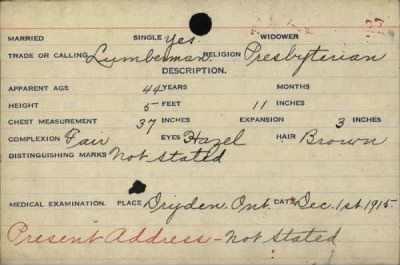 MARRIED SINGLE Yes. WIDOWER
TRADE OR CALLING Lumberman. RELIGION Presbyterian
DESCRIPTION.
APPARENT AGE 44 YEARS MONTHS
HEIGHT 5 FEET 11 INCHES
CHEST MEASUREMENT 37 INCHES EXPANSION 3 INCHES
COMPLEXION Fair EYES Hazel HAIR Brown
DISTINGUISHING MARKS Not Stated
MEDICAL EXAMINATION. PLACE Dryden, Ont. DATE Dec. 1st. 1915.
Present Address - Not Stated